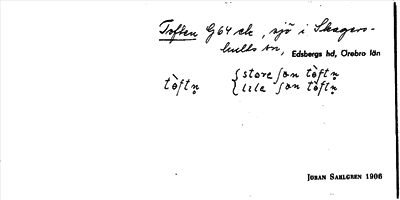 Toften G64 sk, sjö i Skagers-
hults sn, Edsbergs hd, Örebro län
tὸftn̥ { store ʃøn tὸftn̥
{ lile ʃøn tὸftn̥
JÖRAN SAHLGREN 1906